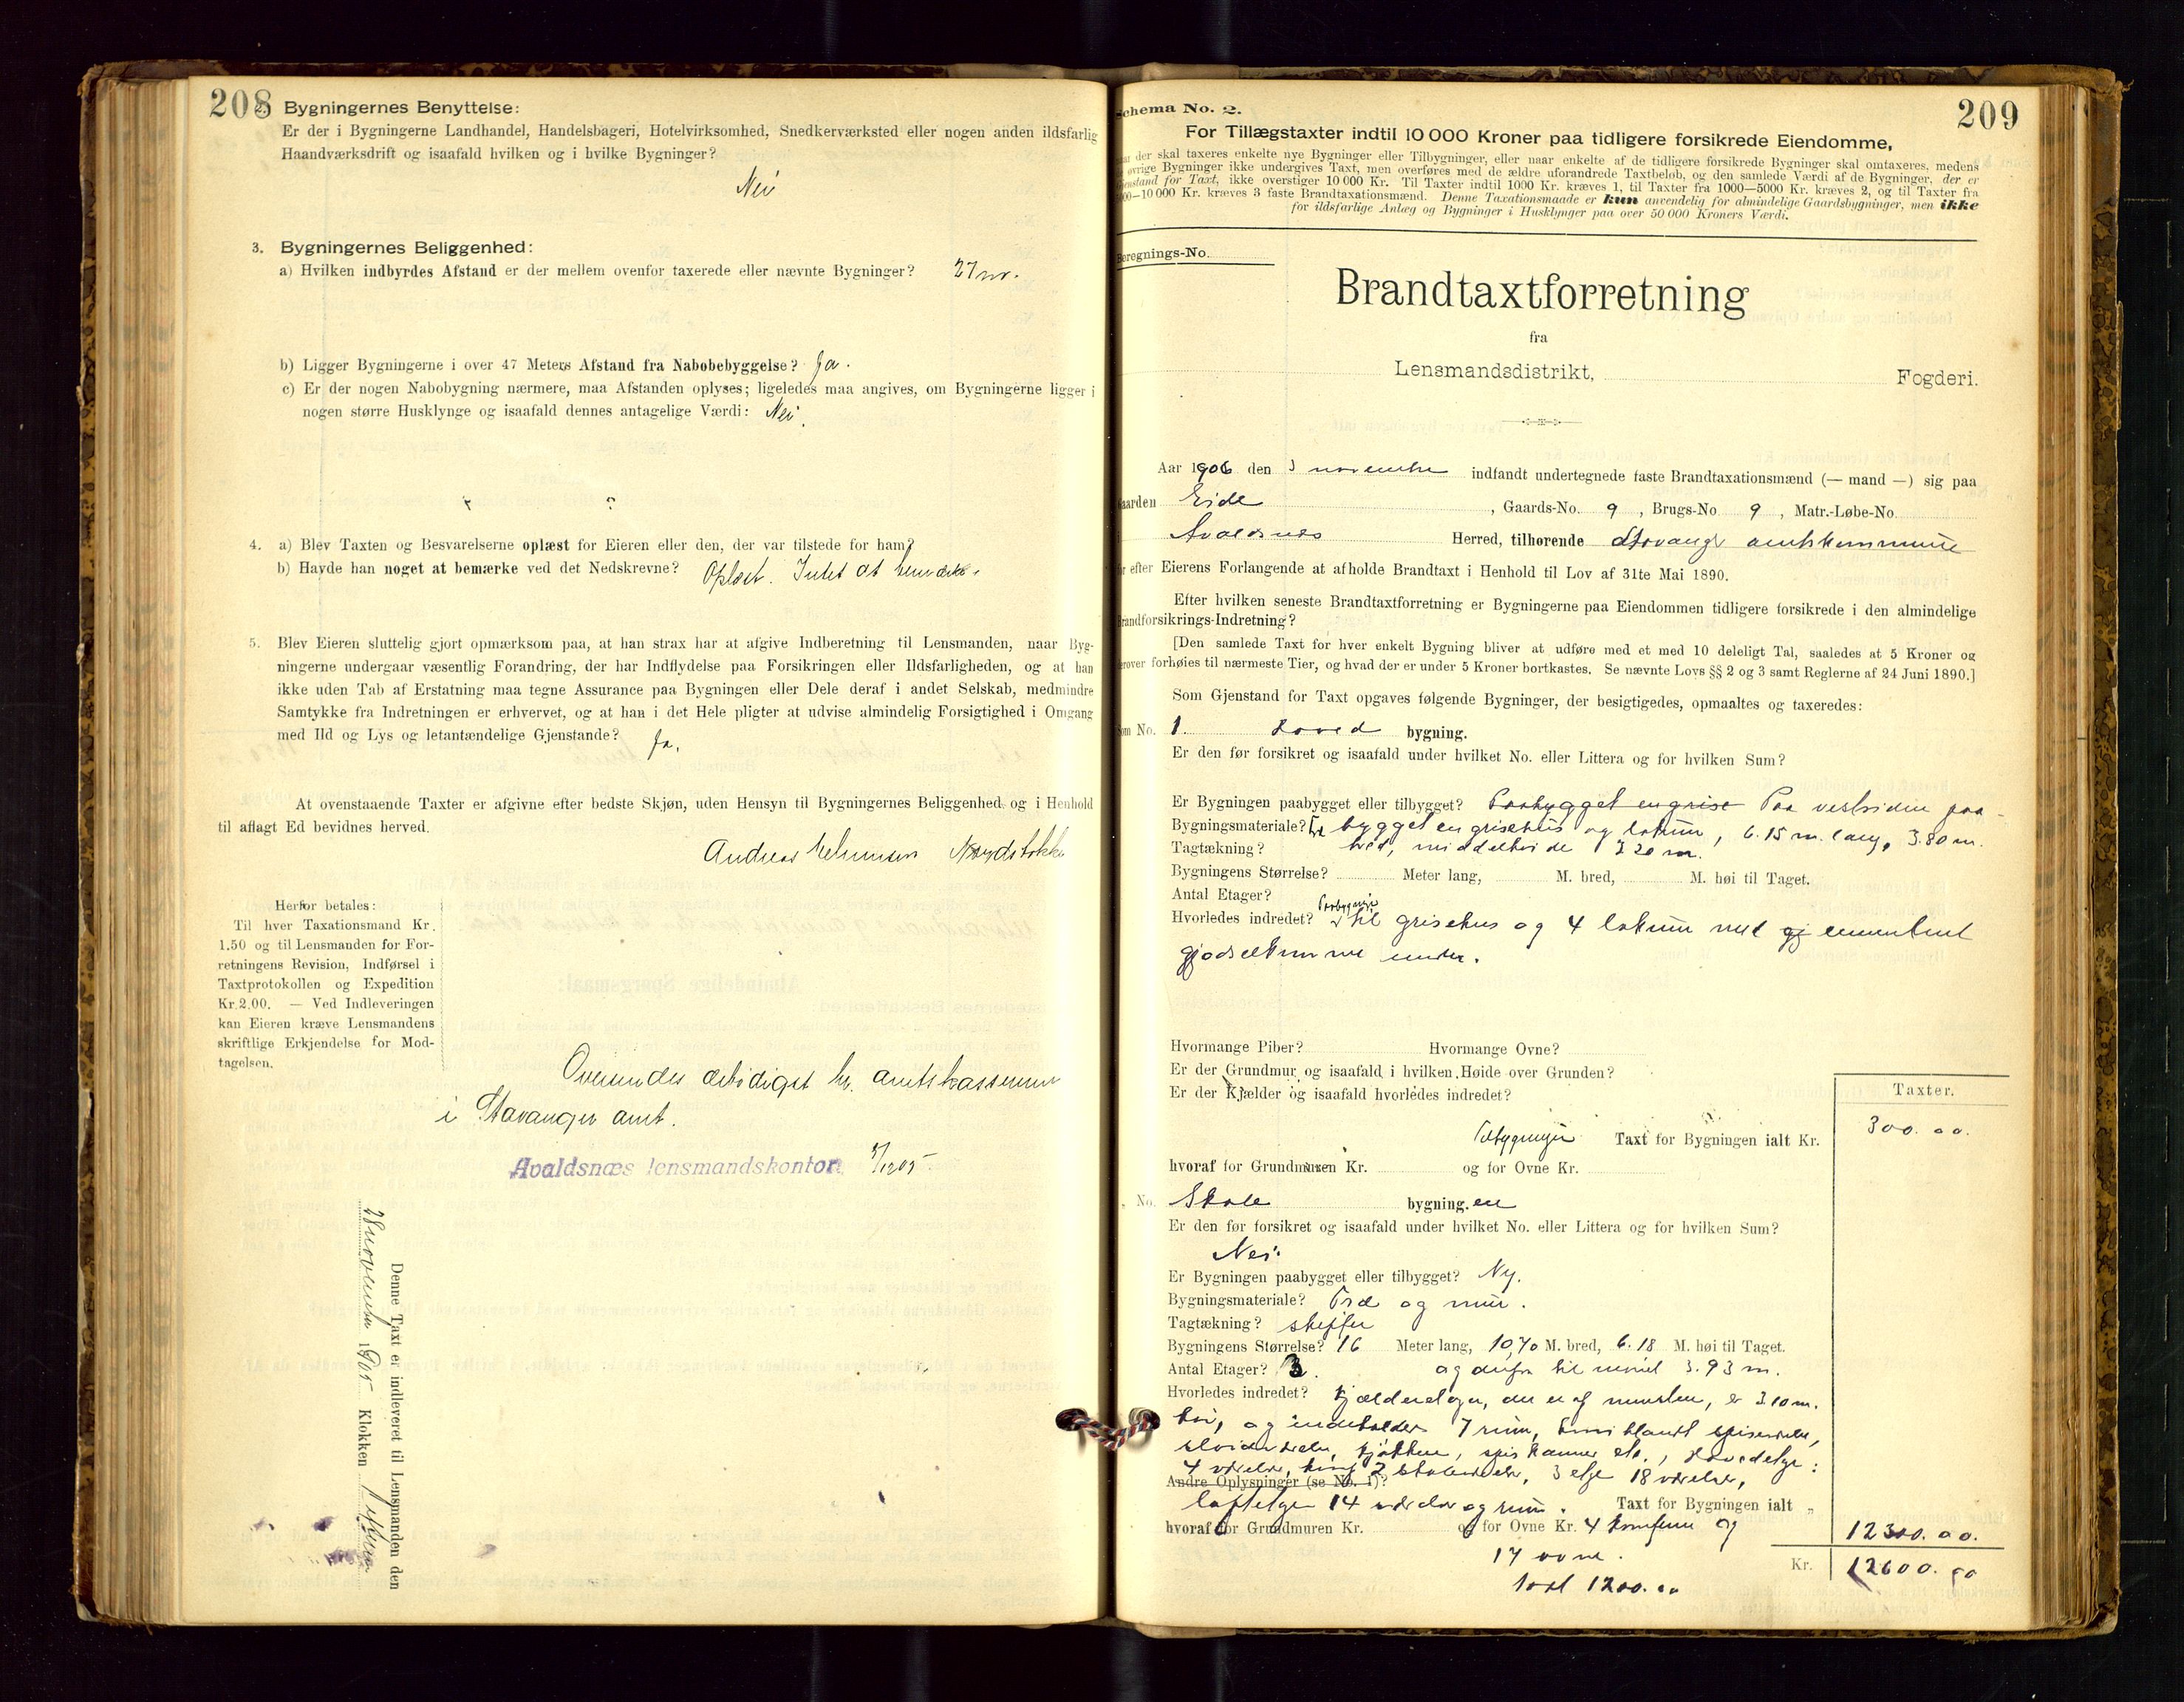 208
Bygningernes Benyttelse:
Er der i Bygningerne Landhandel, Handelsbageri, Hotelvirksomhed, Snedkerværksted eller nogen anden ildsfarlig
Haandværksdrift og isaafald hvilken og i hvilke Bygninger?
Nei
3. Bygningernes Beliggenhed:
a) Hvilken indbyrdes Afstand er der mellem ovenfor taxerede eller nævnte Bygninger? 27 m.
b) Ligger Bygningerne i over 47 Meters Afstand fra Nabobebyggelse? Ja.
c) Er der nogen Nabobygning nærmere, maa Afstanden oplyses; ligeledes maa angives, om Bygningerne ligger i
nogen større Husklynge og isaafald dennes antagelige Værdi: Nei.
4. a) Blev Taxten og Besvarelserne oplæst for Eieren eller den, der var tilstede for ham?
b) Havde han noget at bemærke ved det Nedskrevne? Oplæst. Intet at bemærke.
5. Blev Eieren sluttelig gjort opmærksom paa, at han strax har at afgive Indberetning til Lensmanden, naar Byg-
ningerne undergaar væsentlig Forandring, der har Indflydelse paa Forsikringen eller Ildsfarligheden, og at han
ikke uden Tab af Erstatning maa tegne Assurance paa Bygningen eller Dele deraf i andet Selskab, medmindre
Samtykke fra Indretningen er erhvervet, og at han i det Hele pligter at udvise almindelig Forsigtighed i Omgang
med Ild og Lys og letantændelige Gjenstande? Ja.
At ovenstaaende Taxter er afgivne efter bedste Skjøn, uden Hensyn til Bygningernes Beliggenhed og i Henhold
til aflagt Ed bevidnes herved.
Andreas
Herfor betales:
Til hver Taxationsmand Kr.
1.50 og til Lensmanden for For-
retningens Revision, Indførsel i
Taxtprotokollen og Expedition
Kr. 2.00. — Ved Indleveringen
kan Eieren kræve Lensmandens
skriftlige Erkjendelse for Mod-
tagelsen.
Oversendes ærbødigst hr. amtskasserer
i Stavanger amt.
Avaldsnæs lensmandskontor
Denne Taxt er indleveret til Lensmanden den
28 november 1905 Klokken
209
Schema No. 2.
For Tillægstaxter indtil 10 000 Kroner paa tidligere forsikrede Eiendomme,
naar der skal taxeres enkelte nye Bygninger eller Tilbygninger, eller naar enkelte af de tidligere forsikrede Bygninger skal omtaxeres, medens
øvrige Bygninger ikke undergives Taxt, men overføres med de ældre uforandrede Taxtbeløb, og den samlede Værdi af de Bygninger, der er
Gjenstand for Taxt, ikke overstiger 10 000 Kr. Til Taxter indtil 1000 Kr. kræves 1, til Taxter fra 1000—5000 Kr. kræves 2, og til Taxter fra
5000—10 000 Kr. kræves 3 faste Brandtaxationsmænd. Denne Taxationsmaade er kun anvendelig for almindelige Gaardsbygninger, men ikke
for ildsfarlige Anlæg og Bygninger i Husklynger paa over 50 000 Kroners Værdi.
Beregnings-No.
Brandtaxtforretning
fra
Lensmandsdistrikt, Fogderi.
Aar 1906 den 3 november indfandt undertegnede faste Brandtaxationsmænd (— mand —) sig paa
Gaarden Eide, Gaards-No. 9, Brugs-No 9, Matr.-Løbe-No.
i Avaldsnes Herred, tilhørende Stavanger amtskommune
for efter Eierens Forlangende at afholde Brandtaxt i Henhold til Lov af 31te Mai 1890.
Efter hvilken seneste Brandtaxtforretning er Bygningerne paa Eiendommen tidligere forsikrede i den almindelige
Brandforsikrings-Indretning?
[Den samlede Taxt for hver enkelt Bygning bliver at udføre med et med 10 deleligt Tal, saaledes at 5 Kroner og
derover forhøies til nærmeste Tier, og hvad der er under 5 Kroner bortkastes. Se nævnte Lovs §§ 2 og 3 samt Reglerne af 24 Juni 1890.]
Som Gjenstand for Taxt opgaves følgende Bygninger, der besigtigedes, opmaaltes og taxeredes:
Som No. 1. Hoved bygning.
Er den før forsikret og isaafald under hvilket No. eller Littera og for hvilken Sum?
Er Bygningen paabygget eller tilbygget? Paabygget en grise Paa vestsiden paa-
Bygningsmateriale? bygget en grisehus og lokum, 6.15 m. lang, 3.80 m.
Tagtækning? bred, middelhøide 3.20 m.
Bygningens Størrelse? Meter lang, M. bred, M. høi til Taget.
Antal Etager?
Hvorledes indredet? Paabygningen til grisehus og 4 lokum med gj cementeret
gjødselkumme under.
Hvormange Piber? Hvormange Ovne?
Er der Grundmur og isaafald i hvilken Høide over Grunden?
Er der Kjælder og isaafald hvorledes indredet?
Taxter.
Tilbygningen Taxt for Bygningen ialt Kr. 300.00.
hvoraf for Grundmuren Kr. og for Ovne Kr.
" No. Skole bygning.en
Er den før forsikret og isaafald under hvilket No. eller Littera og for hvilken Sum?
Nei.
Er Bygningen paabygget eller tilbygget? Ny.
Bygningsmateriale? Træ og mur.
Tagtækning? skiffer
Bygningens Størrelse? 16 Meter lang, 10,70 M. bred, 6.18 M. høi til Taget.
Antal Etager? 3. og derfra til mønet 3.93 m.
Hvorledes indredet? Kjælderetagen, der er af mursten, er 3.10 m.
høi, og indeholder 7 rum, hvoriblandt spiseværelse,
sløidværelse, kjøkken, spiskammer etc., Hovedetge:
4 værelser, hvoraf 2 skoleværelser, 3 etge 18 værelser,
Andre Oplysninger (se No. 1)?
loftetge 14 værelser og rum. Taxt for Bygningen ialt "
hvoraf for Grundmuren Kr. og for Ovne Kr. 4 komfurer og 12300.00.
17 ovne.
taxt 1200.00
Kr. 12600.00